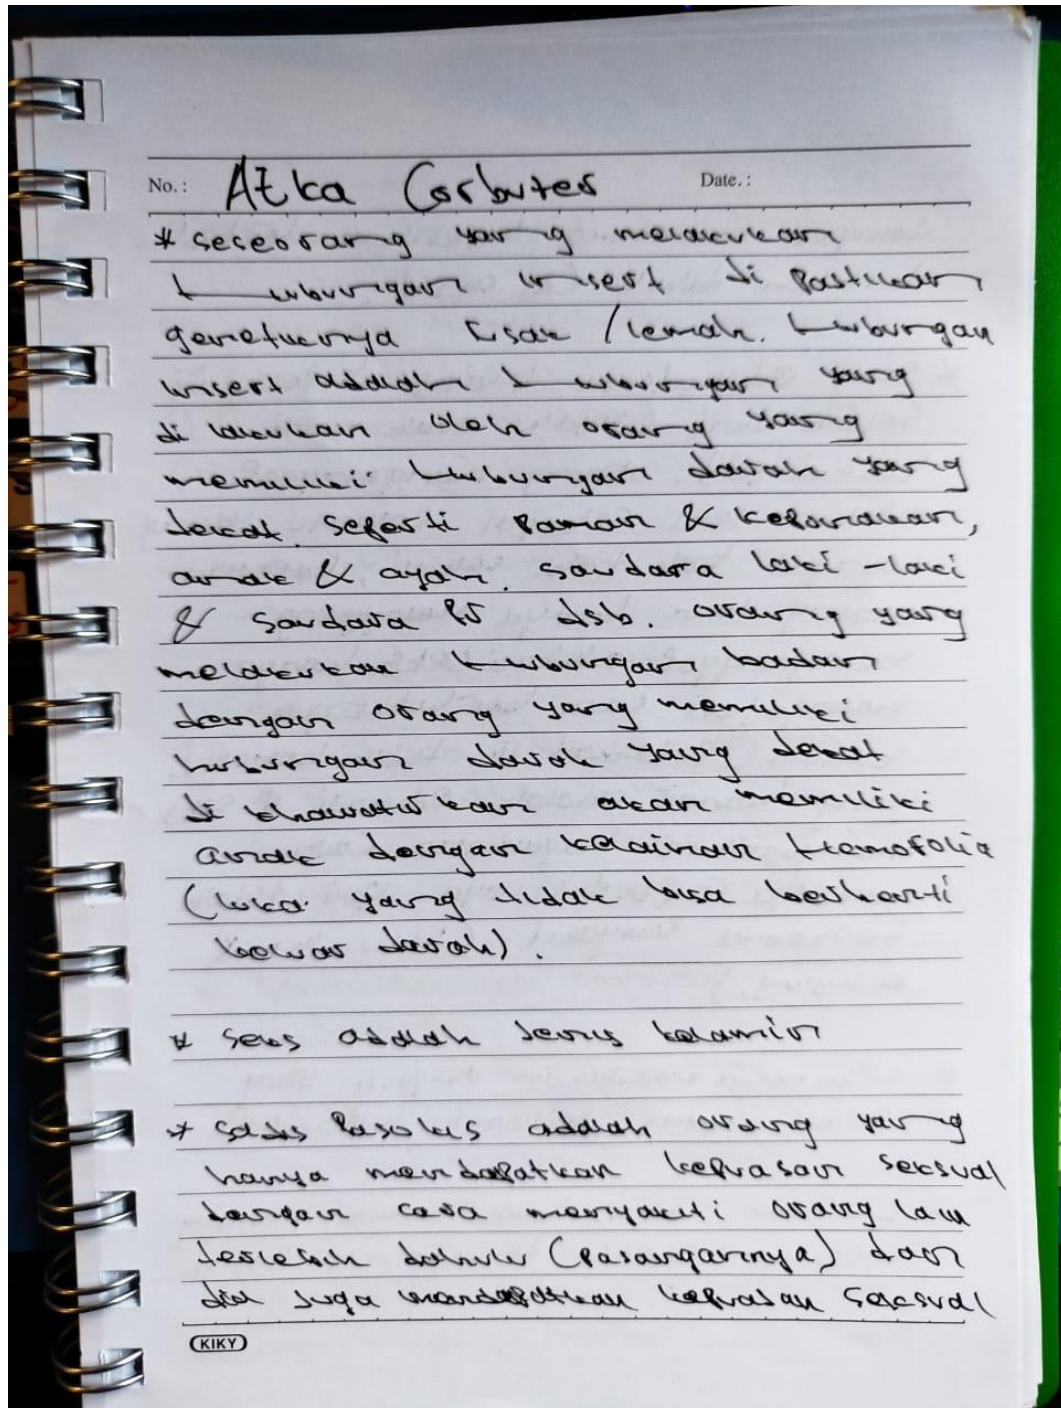 No.: Azka Corbuter Date.:
* seseorang yang melakukan
hubungan insert di Pastikan
genetiknya rusak / lemah. Hubungan
insert adalah hubungan yang
di lakukan oleh orang yang
memiliki hubungan darah yang
dekat. seperti Paman & keponakan,
anak & ayah. saudara laki-laki
& saudara Pr dsb. orang yang
melakukan hubungan badan
dengan orang yang memiliki
hubungan darah yang dekat
di khawatirkan akan memiliki
anak dengan kelainan Hemofolia
(luka yang tidak bisa berhenti
keluar darah).
* seks adalah Jenis kelamin
* sadis adalah orang yang
hanya mendapatkan kepuasan seksual
dengan cara menyakiti orang lain
terlebih dahulu (pasangannya) dan
dia juga mendapatkan kepuasan seksual
KIKY